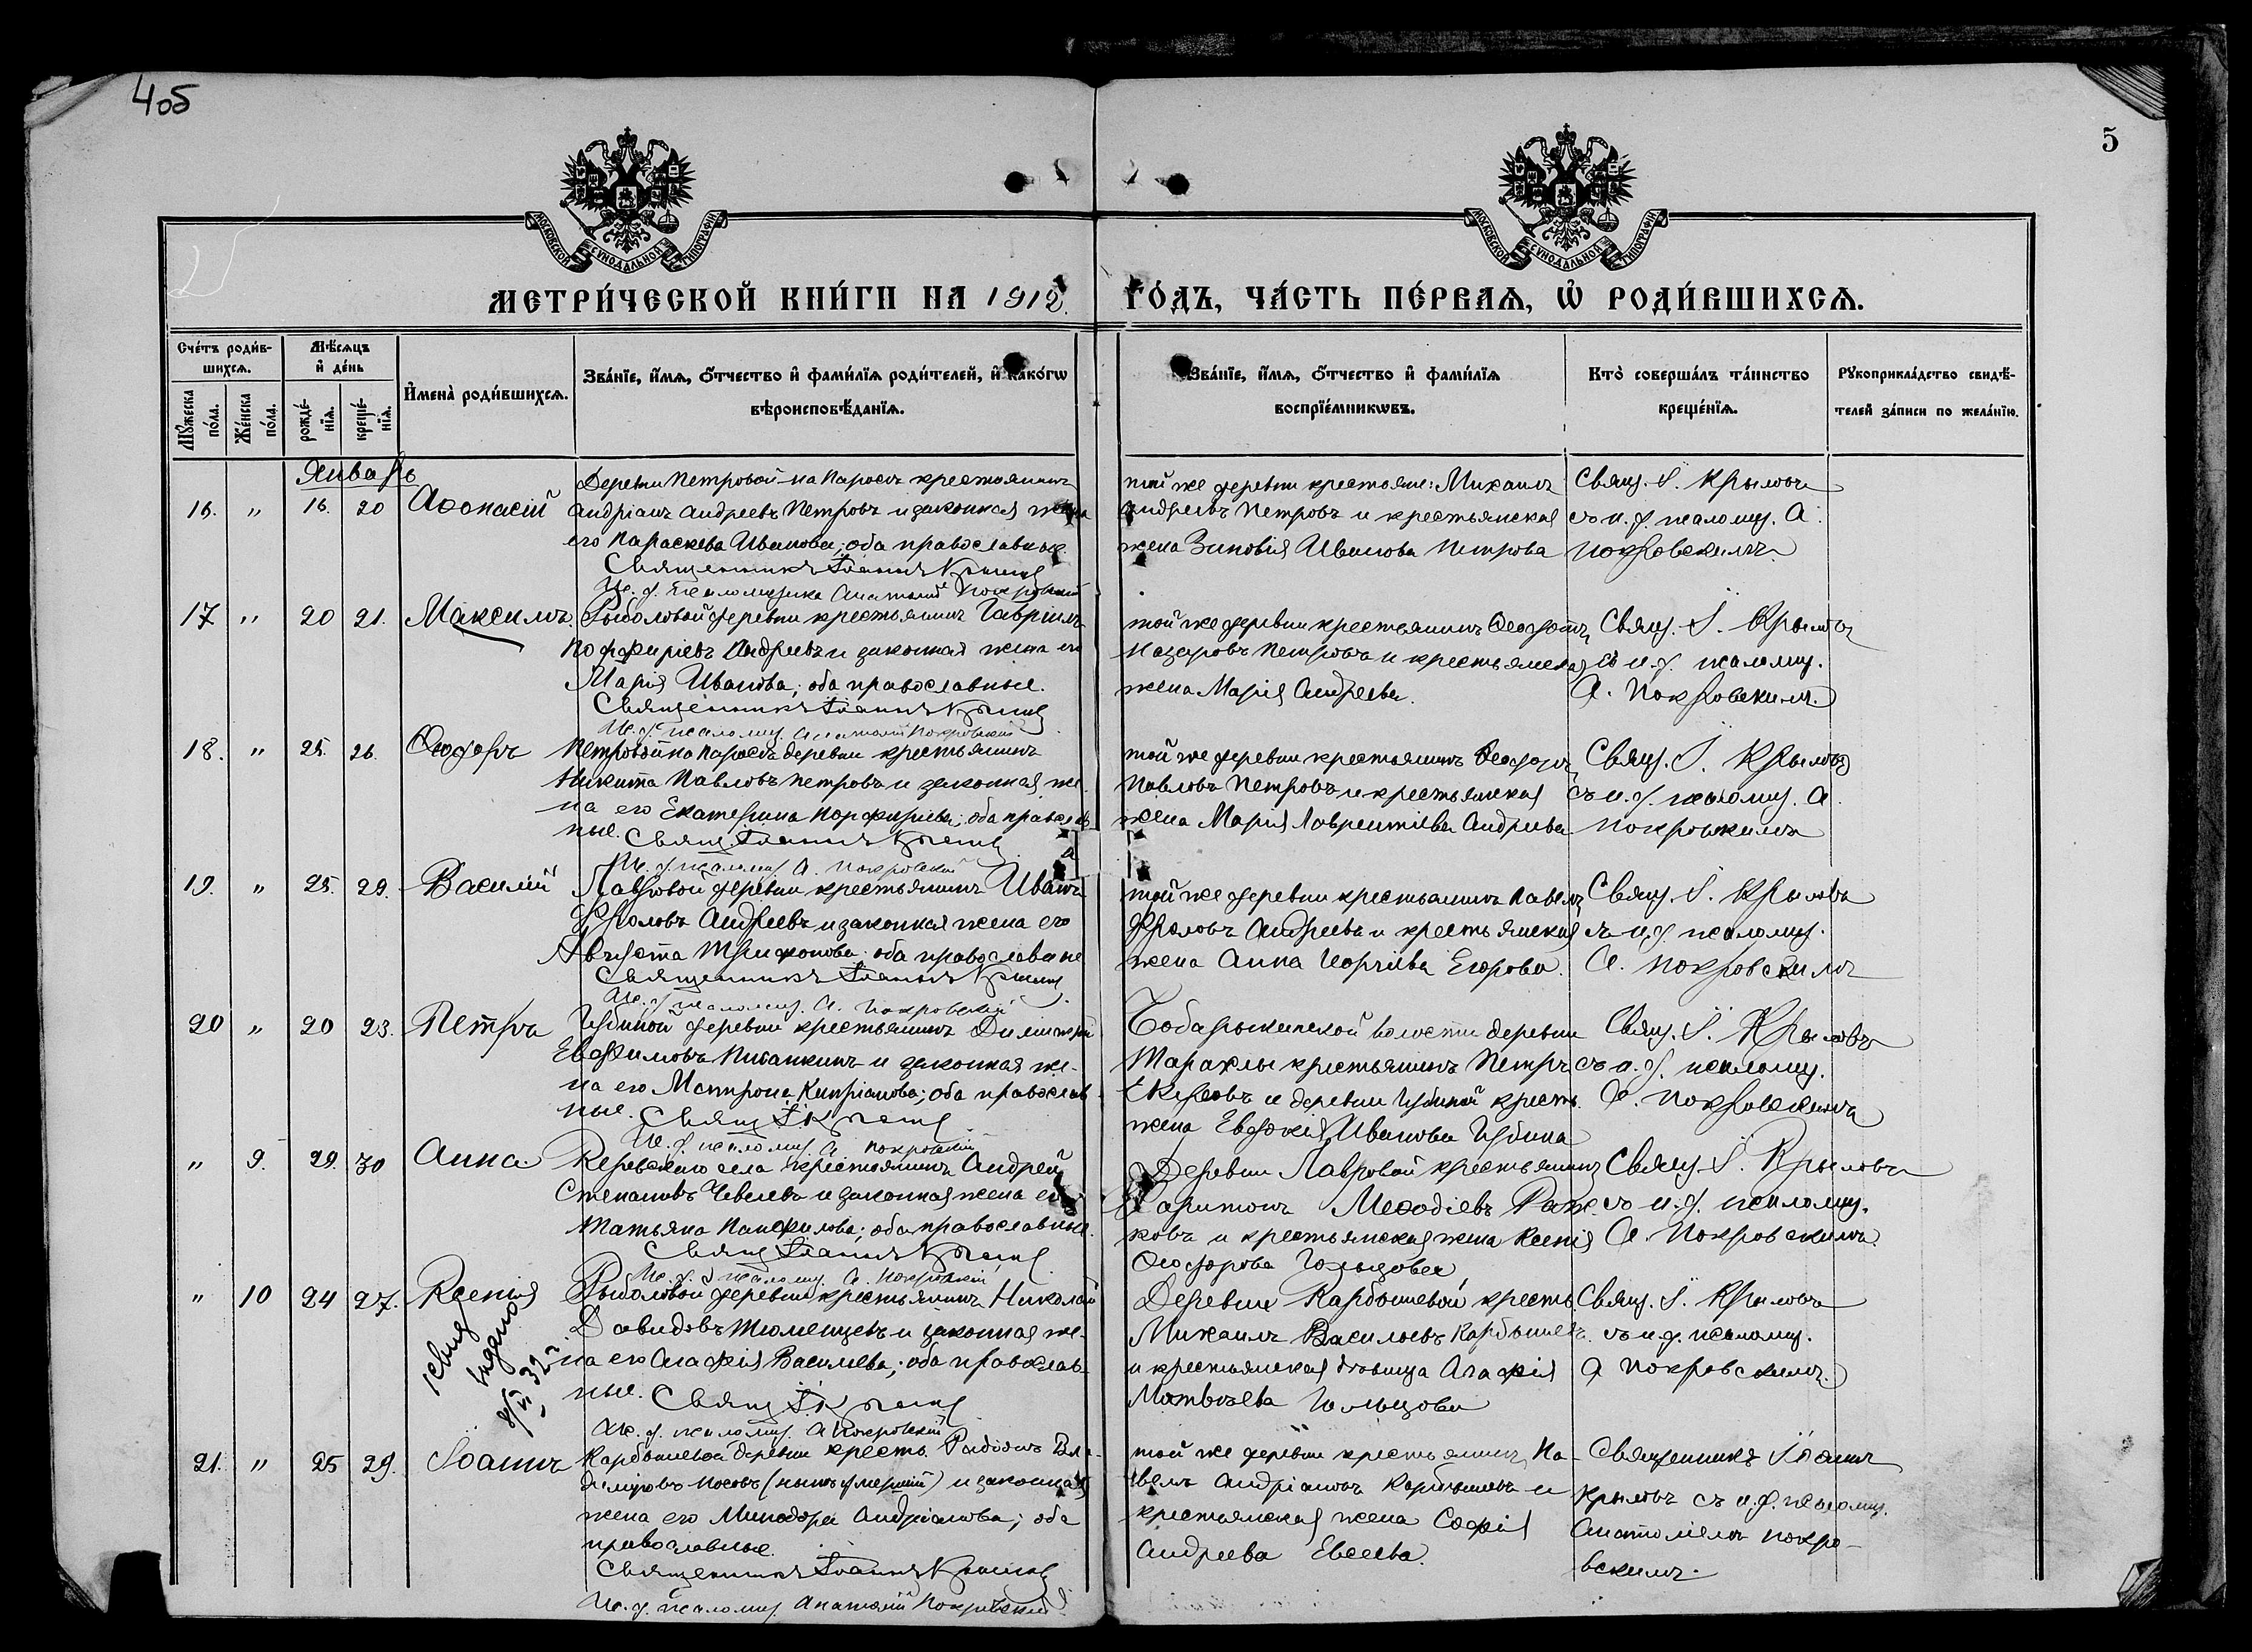 405
5
МОСКОВСКОЙ СУНОДАЛЬНОЙ ТИПОГРАФІИ
МОСКОВСКОЙ СУНОДАЛЬНОЙ ТИПОГРАФІИ
МЕТРИ́ЧЕСКОЙ КНИ́ГИ НА 1912.
ГО́ДЪ, ЧА́СТЬ ПЕ́РВАѦ, Ѡ҆ РОДИ́ВШИХСѦ.
Сче́тъ роди́в-
шихсѧ.
Мѣ́сѧцъ
и҆ де́нь
Мꙋ́жеска по́ла.
Же́нска по́ла.
рожде́-нїѧ.
креще́-нїѧ.
И҆мена̀ роди́вшихсѧ.
Зва́нїе, и҆́мѧ, ѻ҆́тчество и҆ фами́лїѧ роди́телей, и҆ како́гѡ
вѣроисповѣ́данїѧ.
Зва́нїе, и҆́мѧ, ѻ҆́тчество и҆ фами́лїѧ
воспрїе́мникѡвъ.
Кто̀ соверша́лъ та́инство
креще́нїѧ.
Рꙋкоприкла́дство свидѣ́-
телей за́писи по жела́нїю.
Январь
16. " 16. 20 Аѳонасій
Деревни Петровой на Паросѣ крестьянинъ
Андріанъ Андреевъ Петровъ и законная жена
его Параскева Иванова; оба православные.
Священникъ Іоаннъ Крыловъ
Ис. д. псаломщика Анатолій Покровскій
той же деревни крестьяне: Михаилъ
Андреевъ Петровъ и крестьянская
жена Зиновія Иванова Петрова
Свящ. І. Крыловъ
съ и. д. псаломщ. А.
Покровскимъ
17 " 20 21. Максимъ.
Рыболовой деревни крестьянинъ Гавріилъ
Порфиріевъ Андреевъ и законная жена его
Марія Иванова; оба православные.
Священникъ Іоаннъ Крыловъ
Ис. д. псаломщ. Анатолій Покровскій
той же деревни крестьянинъ Ѳеодотъ
Назаровъ Петровъ и крестьянская
жена Марія Андреева.
Свящ. І. Крыловъ
съ и. д. псаломщ.
А. Покровскимъ
18. " 25. 26. Ѳеодоръ
Петровой на Паросѣ деревни крестьянинъ
Никита Павловъ Петровъ и законная же-
на его Екатерина Порфирьева; оба православ
ные. Свящ. Іоаннъ Крыловъ
Ис. д. псаломщ. А. Покровскій
той же деревни крестьянинъ Ѳеодоръ
Павловъ Петровъ и крестьянская
жена Марія Лаврентіева Андреева
Свящ. І. Крыловъ
съ и. д. псаломщ. А.
Покровскимъ
19. " 25. 29. Василій
Лавровой деревни крестьянинъ Иванъ
Фроловъ Андреевъ и законная жена его
Августа Трифонова; оба православные
Священникъ Іоаннъ Крыловъ
Ис. д. псаломщ. А. Покровскій
той же деревни крестьянинъ Павелъ
Фроловъ Андреевъ и крестьянская
жена Анна Георгіева Егорова.
Свящ. І. Крыловъ
съ и. д. псаломщ.
А. Покровскимъ
20 " 20 23. Петръ
Губиной деревни крестьянинъ Димитрій
Евфимовъ и законная же-
на его Матрона Кипріанова; оба православ
ные. Свящ. І. Крыловъ
Ис. д. псаломщ. А. Покровскій
волости деревни
крестьянинъ Петръ
и деревни Губиной крестъ.
жена Евдокія Иванова Губина
Свящ. І. Крыловъ
съ и. д. псаломщ.
А. Покровскимъ
" 9. 29. 30 Анна
села крестьянинъ Андрей
Степановъ и законная жена его
Татьяна Панфилова; оба православные.
Свящ. Іоаннъ Крыловъ
Ис. д. псаломщ. А. Покровскій
Деревни Лавровой крестьянинъ
Харитонъ Меѳодіевъ
ковъ и крестьянская жена Ксенія
Ѳеодорова Гольцова
Свящ. І. Крыловъ
съ и. д. псаломщ.
А. Покровскимъ
" 10 24 27. Ксенія
выдано
32 г.
Рыболовой деревни крестьянинъ Николай
Давидовъ Тюменцевъ и законная же-
на его Агафія Васильева; оба православ-
ные. Свящ. І. Крыловъ
Ис. д. псаломщ. А. Покровскій
Деревни Карбышевой крестъ.
Михаилъ Васильевъ Карбышевъ
и крестьянская дѣвица Агафія
Матвѣева Гольцова
Свящ. І. Крыловъ
съ и. д. псаломщ.
А. Покровскимъ.
21. " 25 29. Іоаннъ
Карбышевой деревни крестъ. Родіонъ Вла-
диміровъ Носовъ (нынѣ умершій) и законная
жена его Минодора Андріанова; оба
православные.
Священникъ Іоаннъ Крыловъ
Ис. д. псаломщ. Анатолій Покровскій
той же деревни крестьянинъ Па-
велъ Андріановъ Карбышевъ и
крестьянская жена Софія
Андреева Евсеева.
Священникъ Іоаннъ
Крыловъ съ и. д. псаломщ.
Анатоліемъ Покро-
вскимъ.